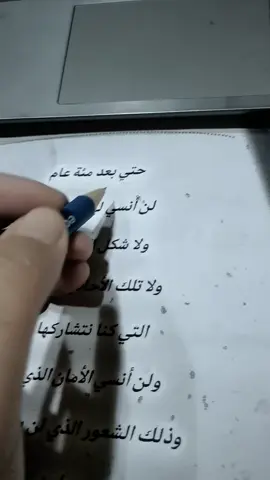 حتي بعد مئة عام
لن أنسي
ولا شكل
ولا تلك
التي كنا نتشاركها
ولن أنسي الأمان الذي
وذلك الشعور الذي لن